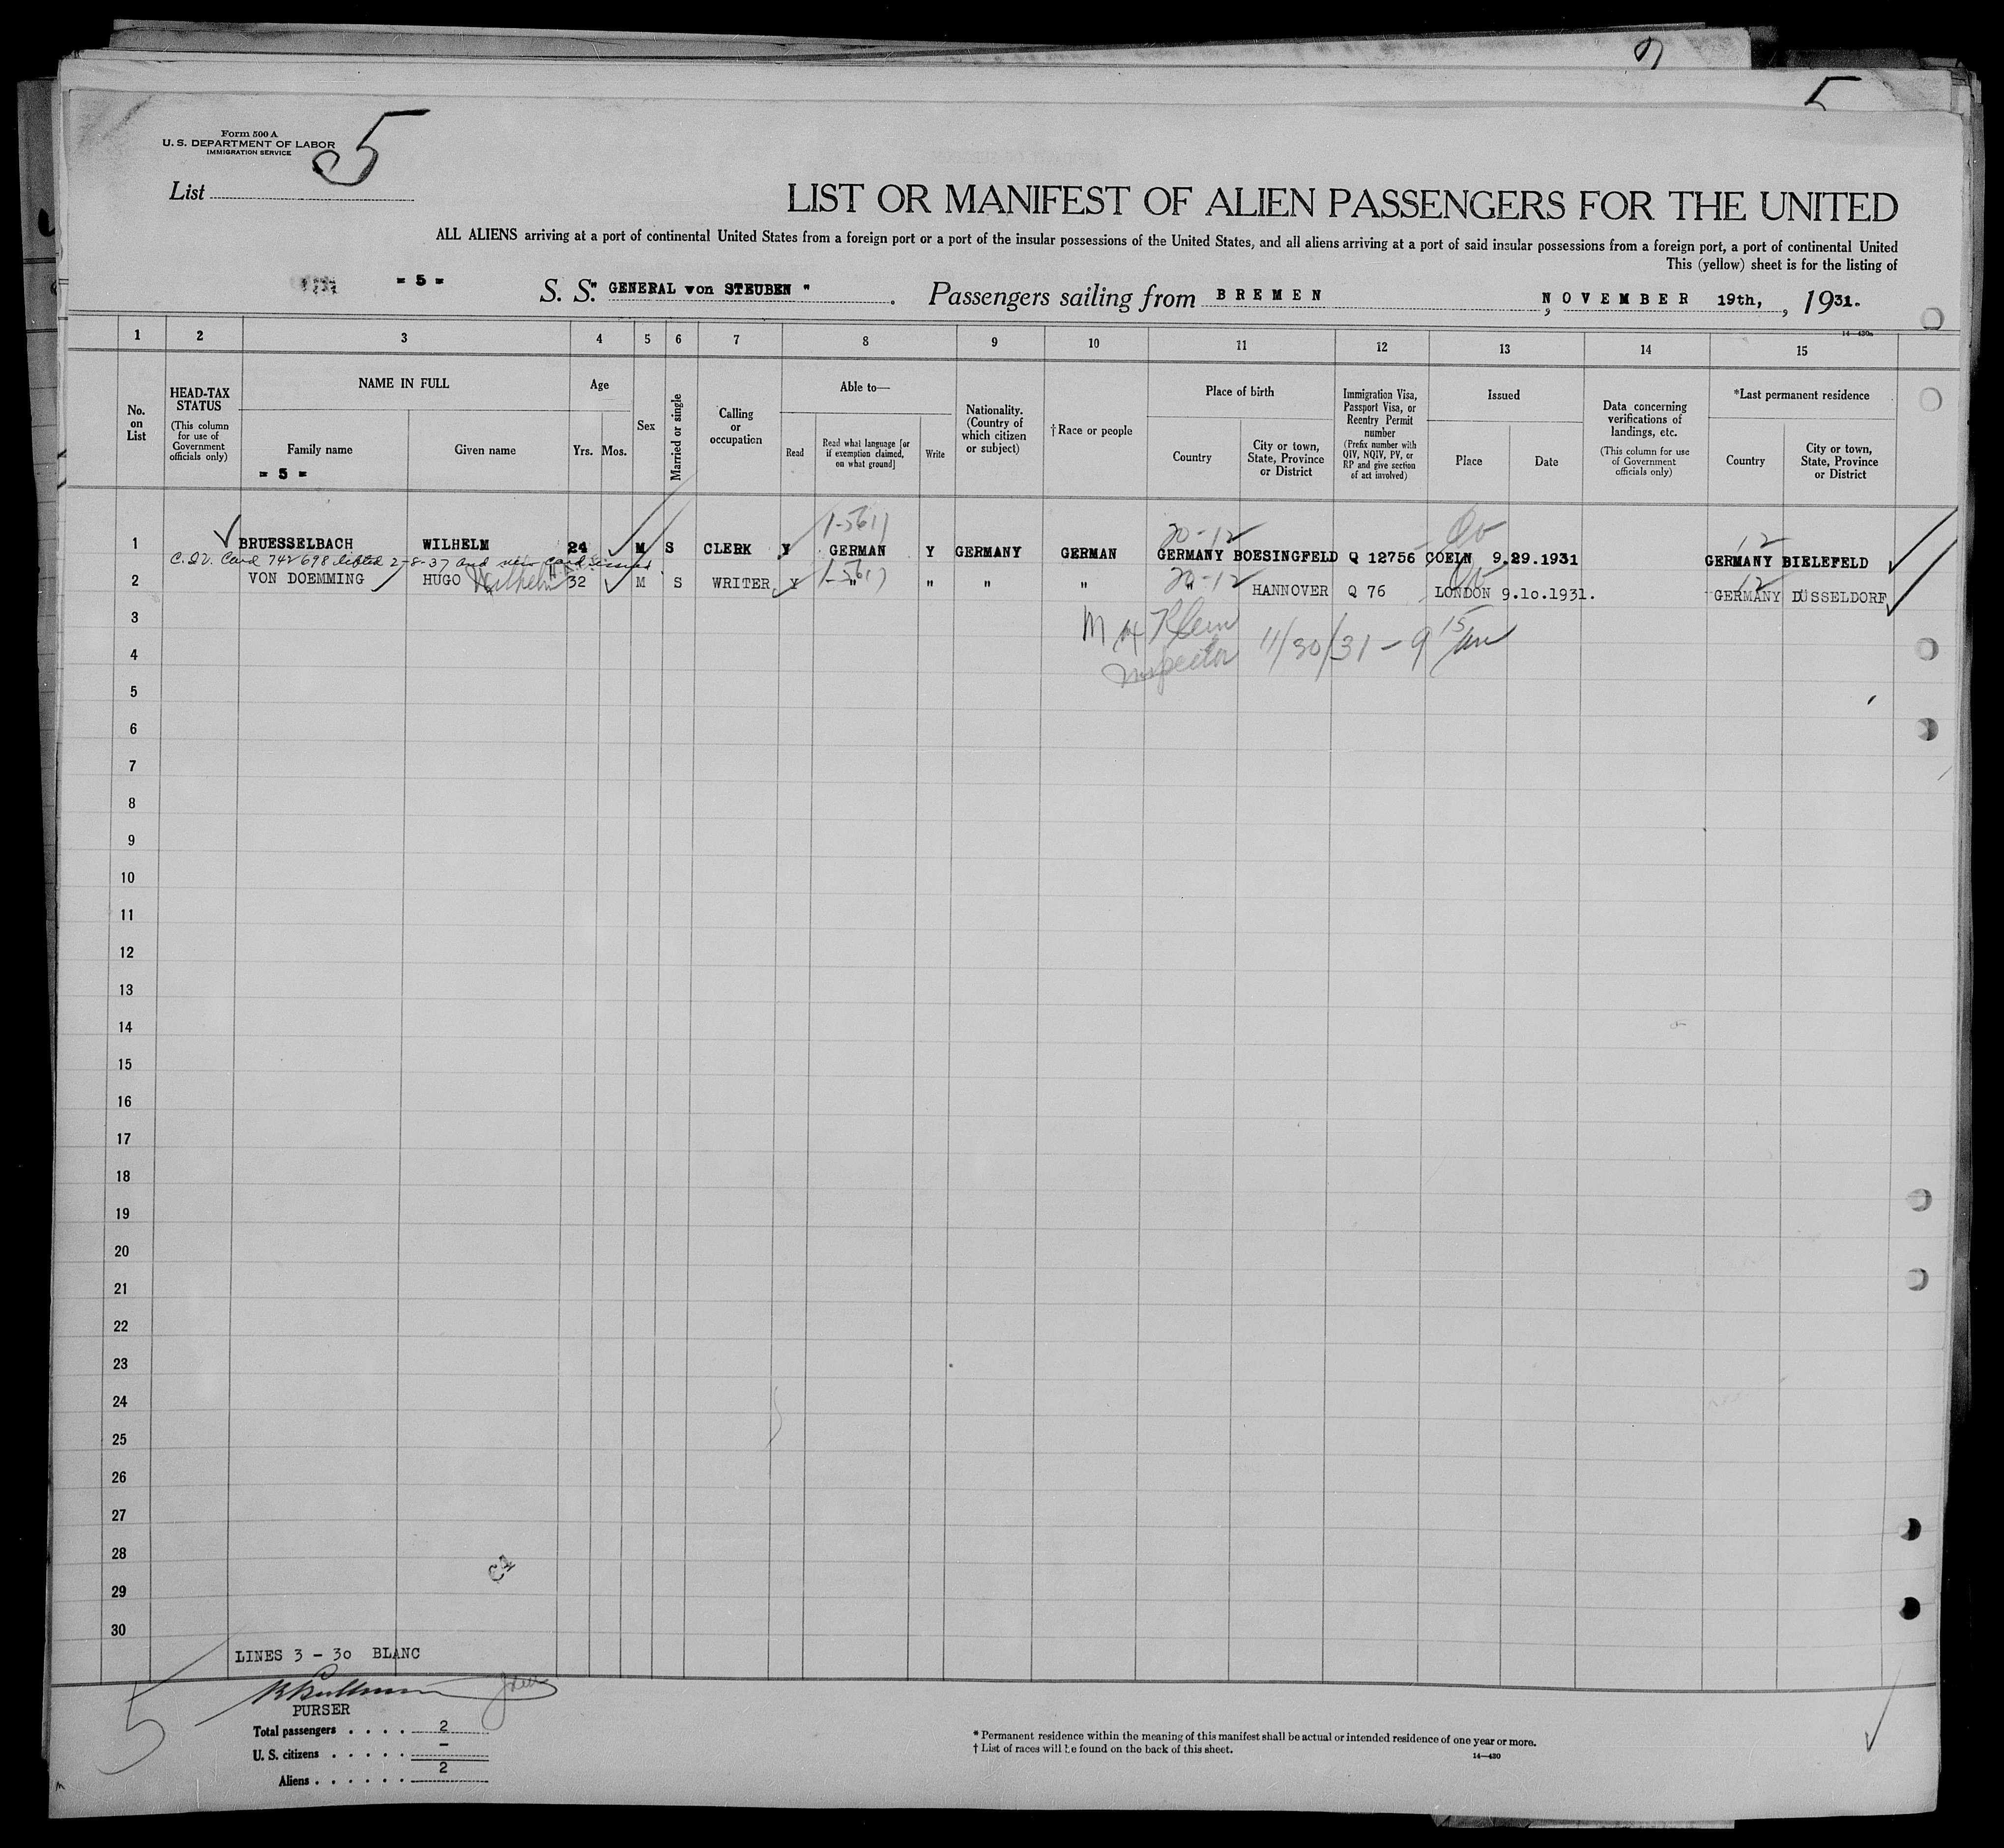 5
Form 500 A
U. S. DEPARTMENT OF LABOR
IMMIGRATION SERVICE
5
List
LIST OR MANIFEST OF ALIEN PASSENGERS FOR THE UNITED
ALL ALIENS arriving at a port of continental United States from a foreign port or a port of the insular possessions of the United States, and all aliens arriving at a port of said insular possessions from a foreign port, a port of continental United
This (yellow) sheet is for the listing of
= 5 = S. S. " GENERAL von STEUBEN " . Passengers sailing from BREMEN , NOVEMBER 19th, , 1931.
14—430a
1 2 3 4 5 6 7 8 9 10 11 12 13 14 15
No. on List
HEAD-TAX STATUS (This column for use of Government officials only)
NAME IN FULL
Family name
= 5 =
Given name
Age
Yrs. Mos.
Sex
Married or single
Calling or occupation
Able to—
Read
Read what language [or if exemption claimed, on what ground]
Write
Nationality. (Country of which citizen or subject)
† Race or people
Place of birth
Country
City or town, State, Province or District
Immigration Visa, Passport Visa, or Reentry Permit number (Prefix number with QIV, NQIV, PV, or RP and give section of act involved)
Issued
Place
Date
Data concerning verifications of landings, etc. (This column for use of Government officials only)
*Last permanent residence
Country
City or town, State, Province or District
20-12
12
1 BRUESSELBACH WILHELM 24 M S CLERK Y GERMAN Y GERMANY GERMAN GERMANY BOESINGFELD Q 12756 COELN 9.29.1931 GERMANY BIELEFELD
C.I.V. Card 742698 lifted 2-8-37 and new card issued.
20-12
12
2 VON DOEMMING HUGO Wilhelm HANS 32 M S WRITER Y " " " " " HANNOVER Q 76 LONDON 9.10.1931. GERMANY DÜSSELDORF
3
M H Klein
Inspector 11/30/31 - 9 15 am
4
5
6
7
8
9
10
11
12
13
14
15
16
17
18
19
20
21
22
23
24
25
26
27
28
29
30
LINES 3 - 30 BLANC
5
PURSER
Total passengers . . . . 2
U. S. citizens . . . . . –
Aliens . . . . . . 2
* Permanent residence within the meaning of this manifest shall be actual or intended residence of one year or more.
† List of races will be found on the back of this sheet.
14—430